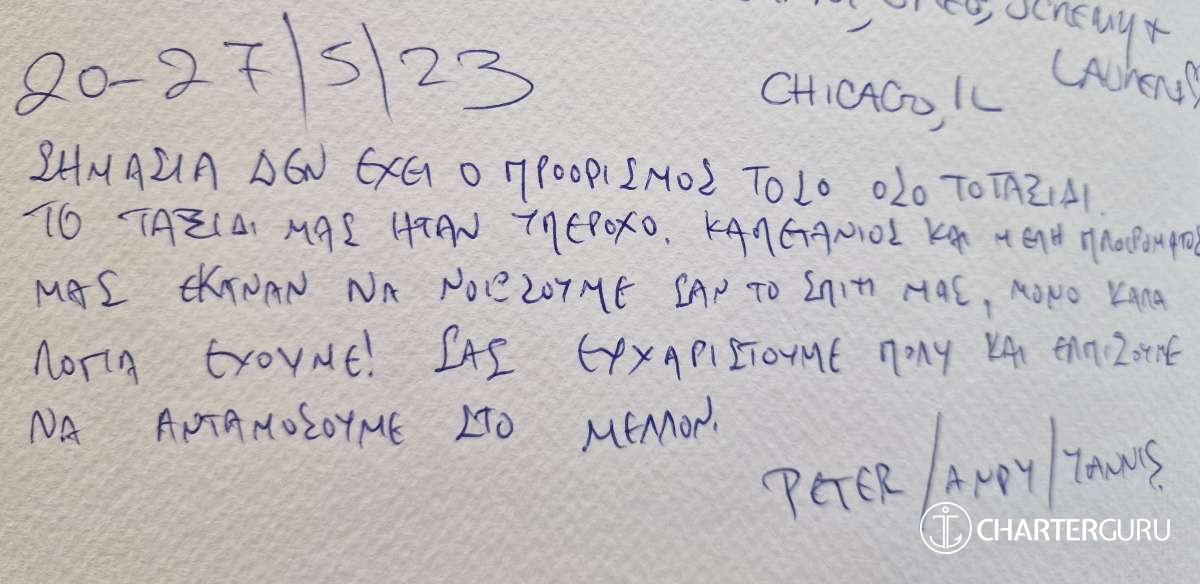 JEREMY +
LAUREN
CHICAGO, IL
20-27/5/23
ΣΗΜΑΣΙΑ ΔΕΝ ΕΧΕΙ Ο ΠΡΟΟΡΙΣΜΟΣ ΤΟΣΟ ΟΣΟ ΤΟ ΤΑΞΙΔΙ.
ΤΟ ΤΑΞΙΔΙ ΜΑΣ ΗΤΑΝ ΥΠΕΡΟΧΟ. ΚΑΠΕΤΑΝΙΟΣ ΚΑΙ ΜΕΛΗ ΠΛΟΙΡΟΜΑΤΟΣ
ΜΑΣ ΕΚΑΝΑΝ ΝΑ ΝΟΙΣΟΥΜΕ ΣΑΝ ΤΟ ΣΠΙΤΙ ΜΑΣ, ΜΟΝΟ ΚΑΛΑ
ΛΟΓΙΑ ΕΧΟΥΜΕ! ΣΑΣ ΕΥΧΑΡΙΣΤΟΥΜΕ ΠΟΛΥ ΚΑΙ ΕΛΠΙΖΟΥΜΕ
ΝΑ ΑΝΤΑΜΟΣΟΥΜΕ ΣΤΟ ΜΕΛΛΟΝ.
PETER/ANDY/YANNIS.
CHARTERGURU